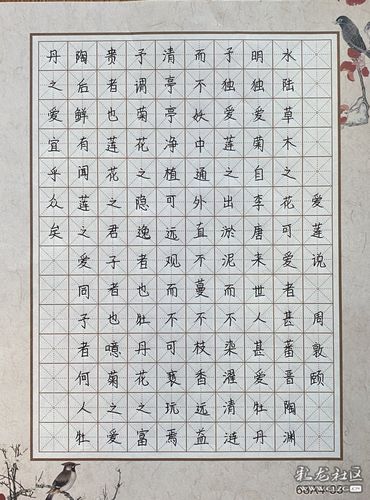 爱莲说 周敦颐
水陆草木之花可爱者甚蕃晋陶渊
明独爱菊自李唐来世人甚爱牡丹
予独爱莲之出淤泥而不染濯清涟
而不妖中通外直不蔓不枝香远益
清亭亭净植可远观而不可亵玩焉
予谓菊花之隐逸者也牡丹花之富
贵者也莲花之君子者也噫菊之爱
陶后鲜有闻莲之爱同予者何人牡
丹之爱宜乎众矣